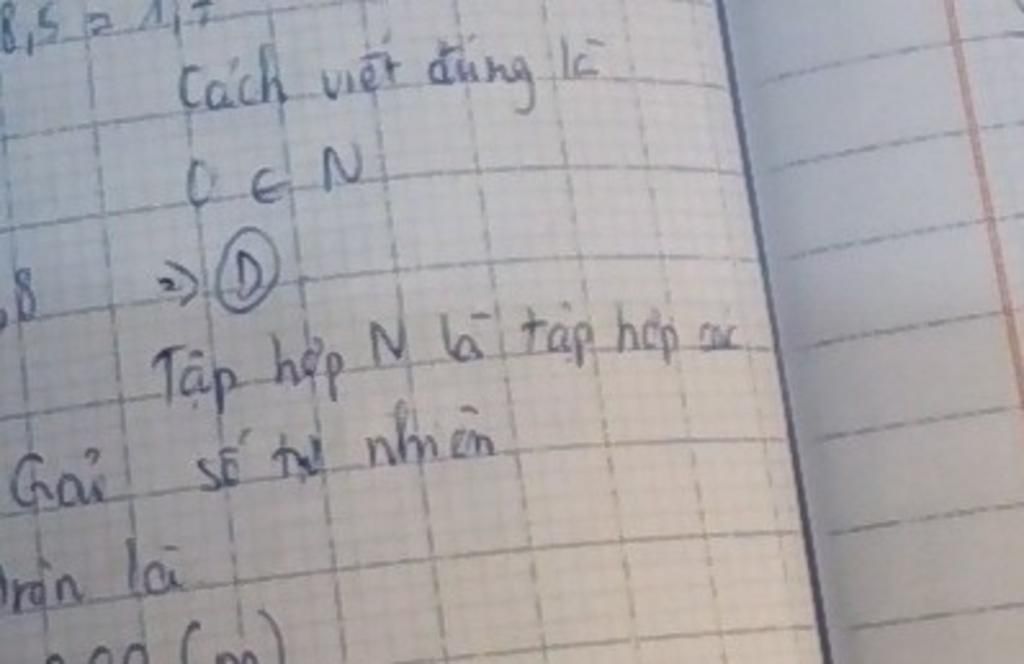 8,5 = 1,7
Cách viết đúng là
0 ∈ N
,8 => D
Tập hợp N là tập hợp các
Gải số tự nhiên
là
(m)